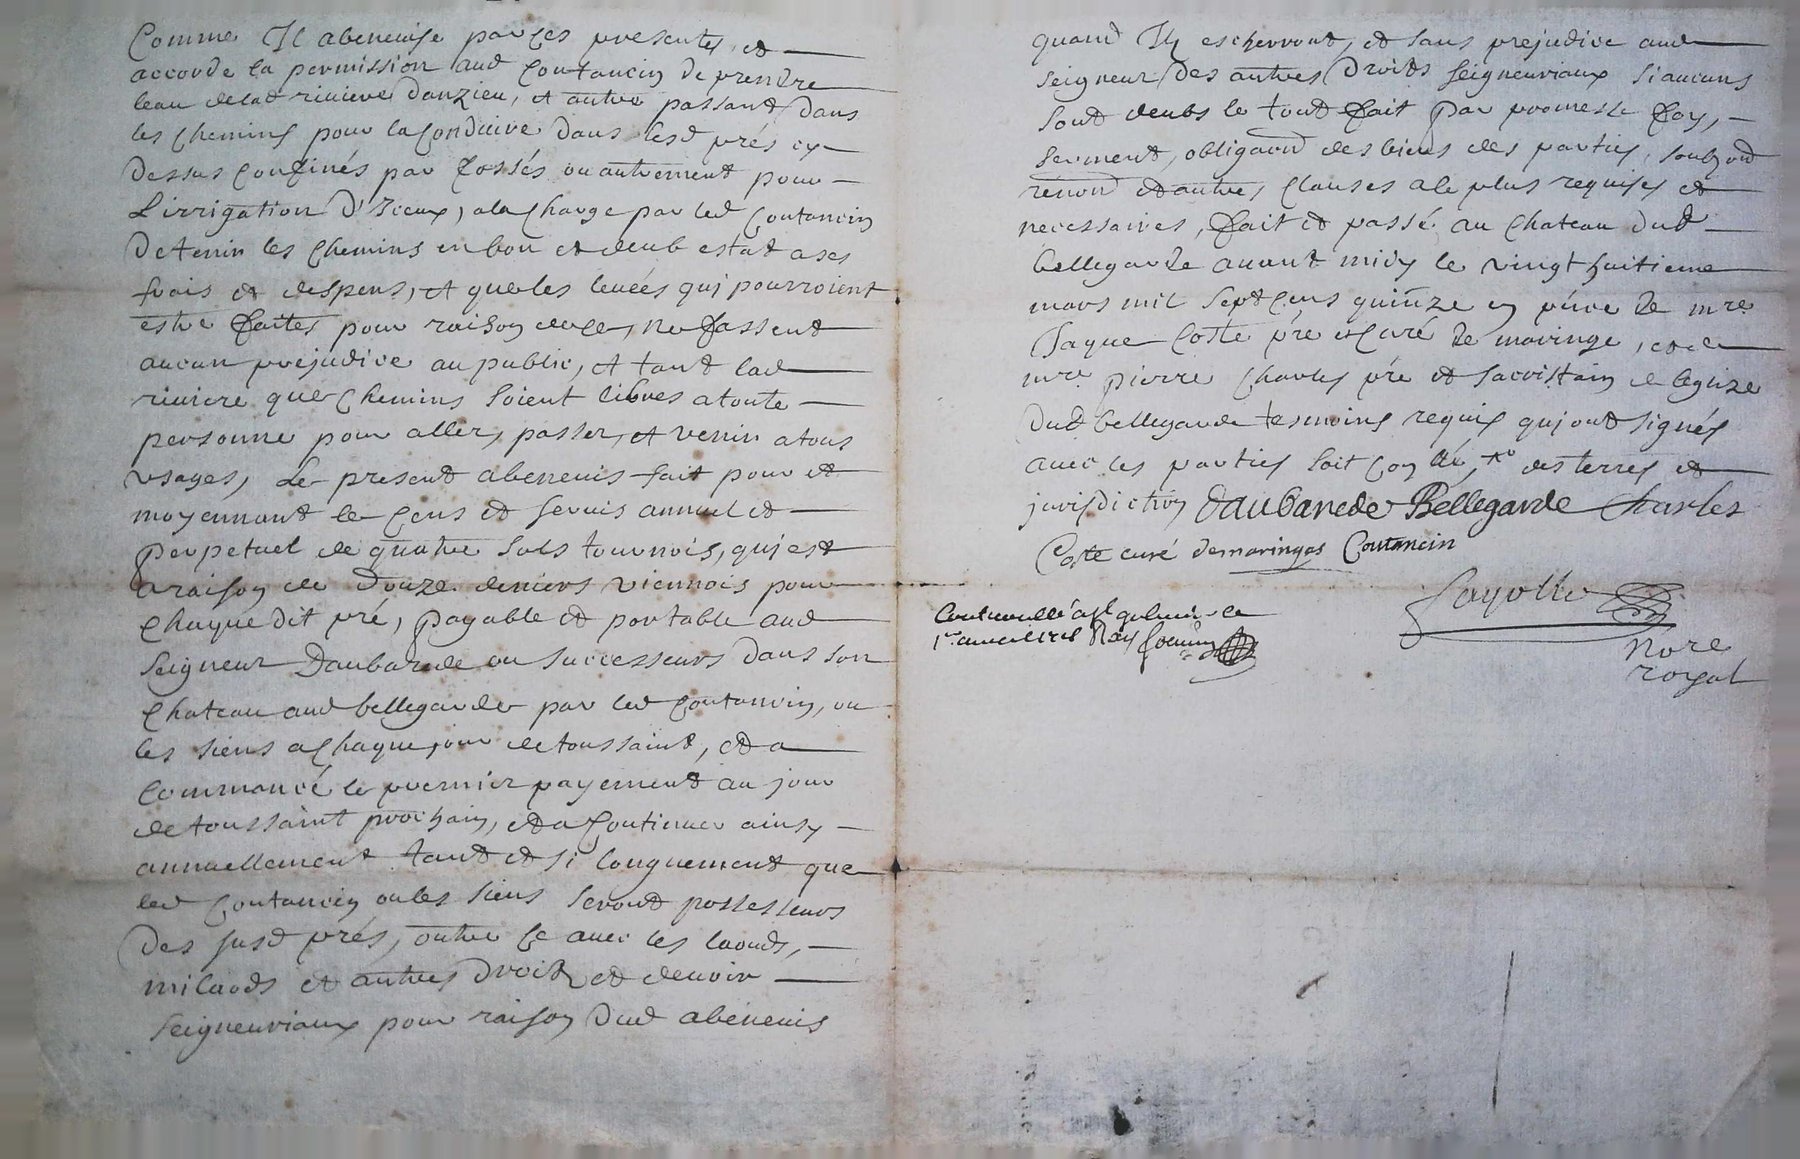 Comme Il abenevise par ces presentes et
accorde la permission aud Coutancin de prendre
leau delad riviere danzieu, et autre passant dans
les chemins pour la conduire dans lesd prés cy
dessus confinés par fossés ou autrement pour
L'irrigation D'Iceux, ala charge par led Coutancin
de tenir les chemins en bon et deub estat a ses
frais et despens, et que les levées qui pourroient
estre faites pour raison de ce, ne fassent
aucun prejudice au public, et tant lad
riviere que chemins soient libres a toute
personne pour aller, passer, et venir a tous
usages, Le present abenevis fait pour et
moyennant le cens et servis annuel et
perpetuel de quatre sols tournois, qui est
a raison de douze deniers viennois pour
chaque dit pré, payable et portable aud
seigneur Daubarede ou successeurs dans son
chateau aud bellegarde par led Coutancin, ou
les siens a chaque jour de toussaint, et a
commancé le premier payement au jour
de toussaint prochain, et a continuer ainsy
annuellement tant et si longuement que
led Coutancin ou les siens seront possesseurs
des susd prés, outre ce avec les laouds,
milaods et autres droits et devoir
seigneuriaux pour raison dud abenevis
quand Ils escherront, et sans prejudice aud
seigneur des autres droits seigneuriaux si aucuns
sont deubs le tout fait par promesse foy,
serment, obligaon des biens des parties, soubson
renond et autres clauses a le plus requises et
necessaires, fait et passé au chateau dud
bellegarde avant midy le vingt huitieme
mars mil sept cens quinze en pnce de mre
Jaque Coste pre et curé de maringe, et de
mre pierre Charles pre et sacristain de leglize
dud bellegarde tesmoins requis qui ont signés
avec les parties soit con lé, des terres et
jurisdiction Daubarede Bellegarde Charles
Coste curé de maringes Coutancin
Contrerollé a st galmier le
1er avril 1715
Fayolle
Nore
royal